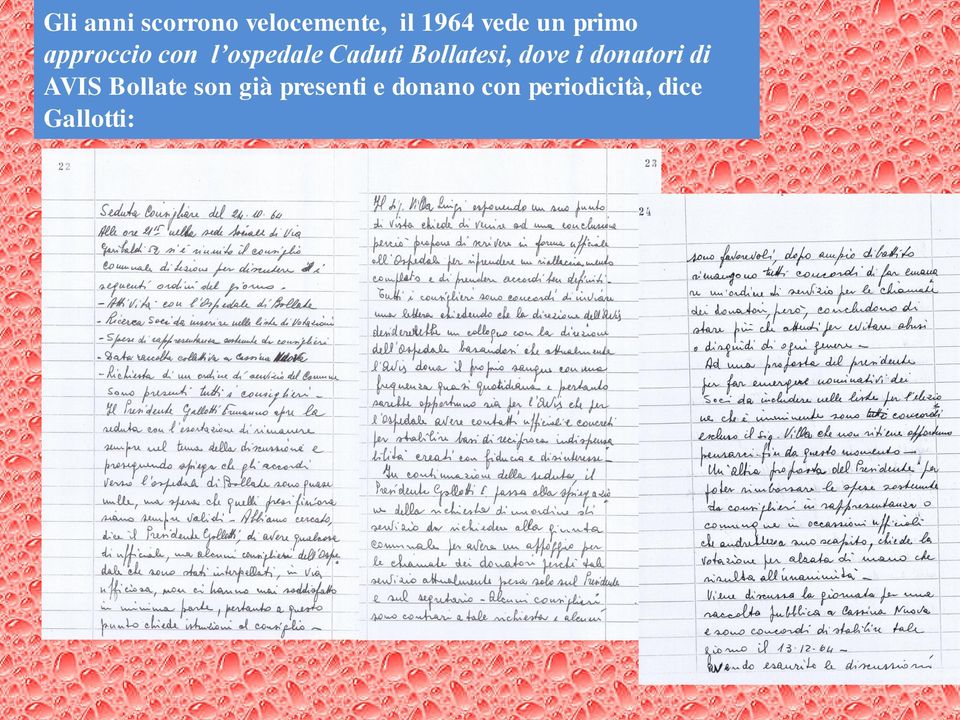 Gli anni scorrono velocemente, il 1964 vede un primo
approccio con l'ospedale Caduti Bollatesi, dove i donatori di
AVIS Bollate son già presenti e donano con periodicità, dice
Gallotti:
22
Seduta Consigliare del 24.10.64
Alle ore 21 nella sede sociale di Via
Garibaldi 52 si è riunito il consiglio
Comunale di sezione per discutere i
seguenti ordini del giorno.-
- Attività con l'Ospedale di Bollate
- Ricerca Soci da inserire nelle liste di Votazioni
- Spese di rappresentanza sostenute da consiglieri
- Data raccolta collettiva a Cassina Nuova
- Richiesta di un ordine di servizio del Comune
Sono presenti tutti i consiglieri -
Il Presidente Gallotti Ermanno apre la
seduta con l'esortazione di rimanere
sempre nel tema della discussione e
proseguendo spiega che gli accordi
verso l'ospedale di Bollate sono quasi
nulle, ma spera che quelli presi finora
siano sempre validi - Abbiamo cercato,
dice il Presidente Gallotti, di avere qualcosa
di ufficiale, ma alcuni consiglieri dell'Ospe
dale che sono stati interpellati, in via
ufficiosa, non ci hanno mai soddisfatto
in minima parte, pertanto a questo
punto chiede istruzioni al consiglio -
23
Il Sig. Villa Luigi esponendo un suo punto
di vista chiede di venire ad una conclusione
perciò propone di scrivere in forma ufficiale
all'Ospedale per riprendere un riallacciamento
completo e di prendere accordi ben definiti -
Tutti i consiglieri sono concordi di inviare
una lettera chiedendo che la direzione dell'Avis
desidererebbe un colloquio con la direzione
dell'Ospedale basandosi che attualmente
l'Avis dona il proprio sangue con una
frequenza quasi quotidiana e pertanto
sarebbe opportuno sia per l'Avis che per
l'Ospedale avere contatti ufficiali e concreti
per stabilire basi di reciproca indispensa
bilità creati con fiducia e disinteresse -
In continuazione della seduta, il
Presidente Gallotti E passa alla spiegazio
ne della richiesta di un ordine di
servizio da richiedere alla giunta
comunale per avere un appoggio per
le chiamate dei donatori perché tale
servizio attualmente pesa solo sul Presidente
e sul segretario - Alcuni consiglieri
sono contrari a tale richiesta e alcuni
24
sono favorevoli, dopo ampio dibattito
rimangono tutti concordi di far emana
re un'ordine di servizio per le chiamate
dei donatori, però, concludono di
stare più che attenti per evitare abusi
o disguidi di ogni genere -
Ad una proposta del presidente
per far emergere nominativi dei
Soci da includere nelle liste per l'elezio
ne che è imminente sono tutti concordi
escluso il Sig. Villa che non ritiene opportuno
pensarci fin da questo momento -
Un'altra proposta del Presidente per
poter rimborsare le spese sostenute
da consiglieri in rappresentanza o
comunque in occassioni ufficiali
che andrebbero suo scapito, chiede la
votazione per alzata di mano che
risulta all'unanimità -
Viene discussa la giornata per una
raccolta pubblica a Cassina Nuova
e sono concordi di stabilire tale
giorno il 13.12.64
Avendo esaurito le discussioni